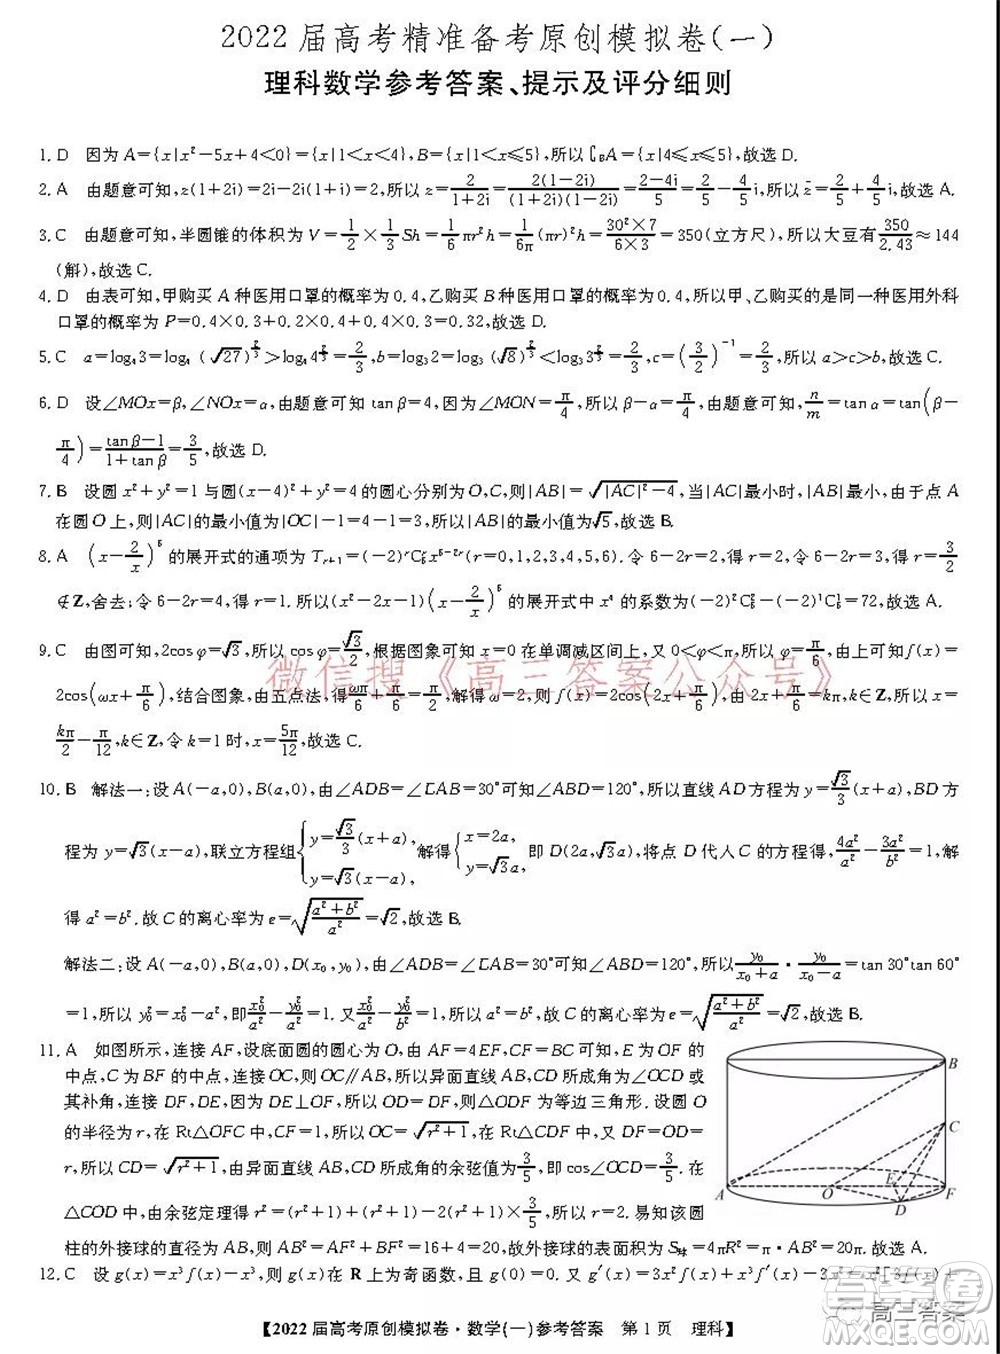 2022 届高考精准备考原创模拟卷(一)
理科数学参考答案、提示及评分细则
1. D 因为 A={x|x²-5x+4<0}={x|1<x<4},B={x|1<x≤5},所以∁_BA={x|4≤x≤5},故选 D.
2. A 由题意可知,z(1+2i)=2(1-i)(1+i)=2,所以 z=2/(1+2i)=2(1-2i)/((1+2i)(1-2i))=(2-4i)/5=2/5-4/5i,所以 z̄=2/5+4/5i,故选 A.
3. C 由题意可知,半圆锥的体积为 V=1/2×1/3Sh=1/6πr²h=1/(6π)(πr)²h=(30²×7)/(6×3)=350(立方尺),所以大豆有350/2.43≈144
(斛),故选 C.
4. D 由表可知,甲购买 A 种医用口罩的概率为 0.4,乙购买 B 种医用口罩的概率为 0.4,所以甲、乙购买的是同一种医用外科
口罩的概率为 P=0.4×0.3+0.2×0.4+0.4×0.3=0.32,故选 D.
5. C a=log₄3=log₄(√27)^(2/3)>log₄4^(2/3)=2/3,b=log₃2=log₃(√8)^(2/3)<log₃3^(2/3)=2/3,c=(3/2)^(-1)=2/3,所以 a>c>b,故选 C.
6. D 设∠MOx=β,∠NOx=α,由题意可知 tan β=4,因为∠MON=π/4,所以 β-α=π/4,由题意可知,n/m=tan α=tan(β-
π/4)=(tan β-1)/(1+tan β)=3/5,故选 D.
7. B 设圆 x²+y²=1 与圆(x-4)²+y²=4 的圆心分别为 O,C,则|AB|=√(|AC|²-4),当|AC|最小时,|AB|最小,由于点 A
在圆 O 上,则|AC|的最小值为|OC|-1=4-1=3,所以|AB|的最小值为√5,故选 B.
8. A (x-2/x)⁶ 的展开式的通项为 T_{r+1}=(-2)^r C_6^r x^{6-2r}(r=0,1,2,3,4,5,6). 令 6-2r=2,得 r=2;令 6-2r=3,得 r=3/2
∉Z,舍去;令 6-2r=4,得 r=1. 所以(x²-2x-1)(x-2/x)⁶ 的展开式中 x⁴ 的系数为(-2)²C_6^2-(-2)¹C_6^1=72,故选 A.
9. C 由图可知,2cos φ=√3,所以 cos φ=√3/2,根据图象可知 x=0 在单调减区间上,又 0<φ<π,所以 φ=π/6,由上可知 f(x)=
2cos(ωx+π/6),结合图象,由五点法有 ωπ/6+π/6=π/2,解得 ω=2,则 f(x)=2cos(2x+π/6),由 2x+π/6=kπ,k∈Z,所以 x=
kπ/2-π/12,k∈Z,令 k=1 时,x=5π/12,故选 C.
10. B 解法一:设 A(-a,0),B(a,0),由∠ADB=∠DAB=30°可知∠ABD=120°,所以直线 AD 方程为 y=√3/3(x+a),BD 方
程为 y=√3(x-a),联立方程组{y=√3/3(x+a), y=√3(x-a),解得{x=2a, y=√3a,即 D(2a,√3a),将点 D 代人 C 的方程得,4a²/a²-3a²/b²=1,解
得 a²=b². 故 C 的离心率为 e=√((a²+b²)/a²)=√2,故选 B.
解法二:设 A(-a,0),B(a,0),D(x₀,y₀),由∠ADB=∠DAB=30°可知∠ABD=120°,所以 y₀/(x₀+a)·y₀/(x₀-a)=tan 30°tan 60°
=1,所以 y₀²=x₀²-a²,即 x₀²/a²-y₀²/a²=1. 又 x₀²/a²-y₀²/b²=1,所以 a²=b²,所以 C 的离心率为 e=√((a²+b²)/a²)=√2,故选 B.
11. A 如图所示,连接 AF,设底面圆的圆心为 O,由 AF=4EF,CF=BC 可知,E 为 OF 的
中点,C 为 BF 的中点,连接 OC,则 OC∥AB,所以异面直线 AB,CD 所成角为∠OCD 或
其补角,连接 DF,DE,因为 DE⊥AF,所以 OD=DF,则△ODF 为等边三角形. 设圆 O
的半径为 r,在 Rt△OFC 中,CF=1,所以 OC=√(r²+1),在 Rt△CDF 中,CF=1,DF=
r,所以 CD=√(r²+1),由异面直线 AB,CD 所成角的余弦值为3/5,即 cos∠OCD=3/5,在
△COD 中,由余弦定理得 r²=(r²+1)+(r²+1)-2(r²+1)×3/5,所以 r=2. 易知该圆
柱的外接球的直径为 AB,所以 AB²=AF²+BF²=16+4=20,故外接球的表面积为 S球=4πR²=π·AB²=20π. 故选 A.
A B C D E F O
12. C 设 g(x)=x³f(x)-x³,易知 g(x)在 R 上为奇函数,且 g(0)=0. 又 g′(x)=3x²f(x)+x³f′(x)-3x²=x²[3f(x)+
【2022 届高考原创模拟卷·数学(一)参考答案 第 1 页 理科】
微信搜《高三答案公众号》
高三答案
答案圈
MXQE.COM